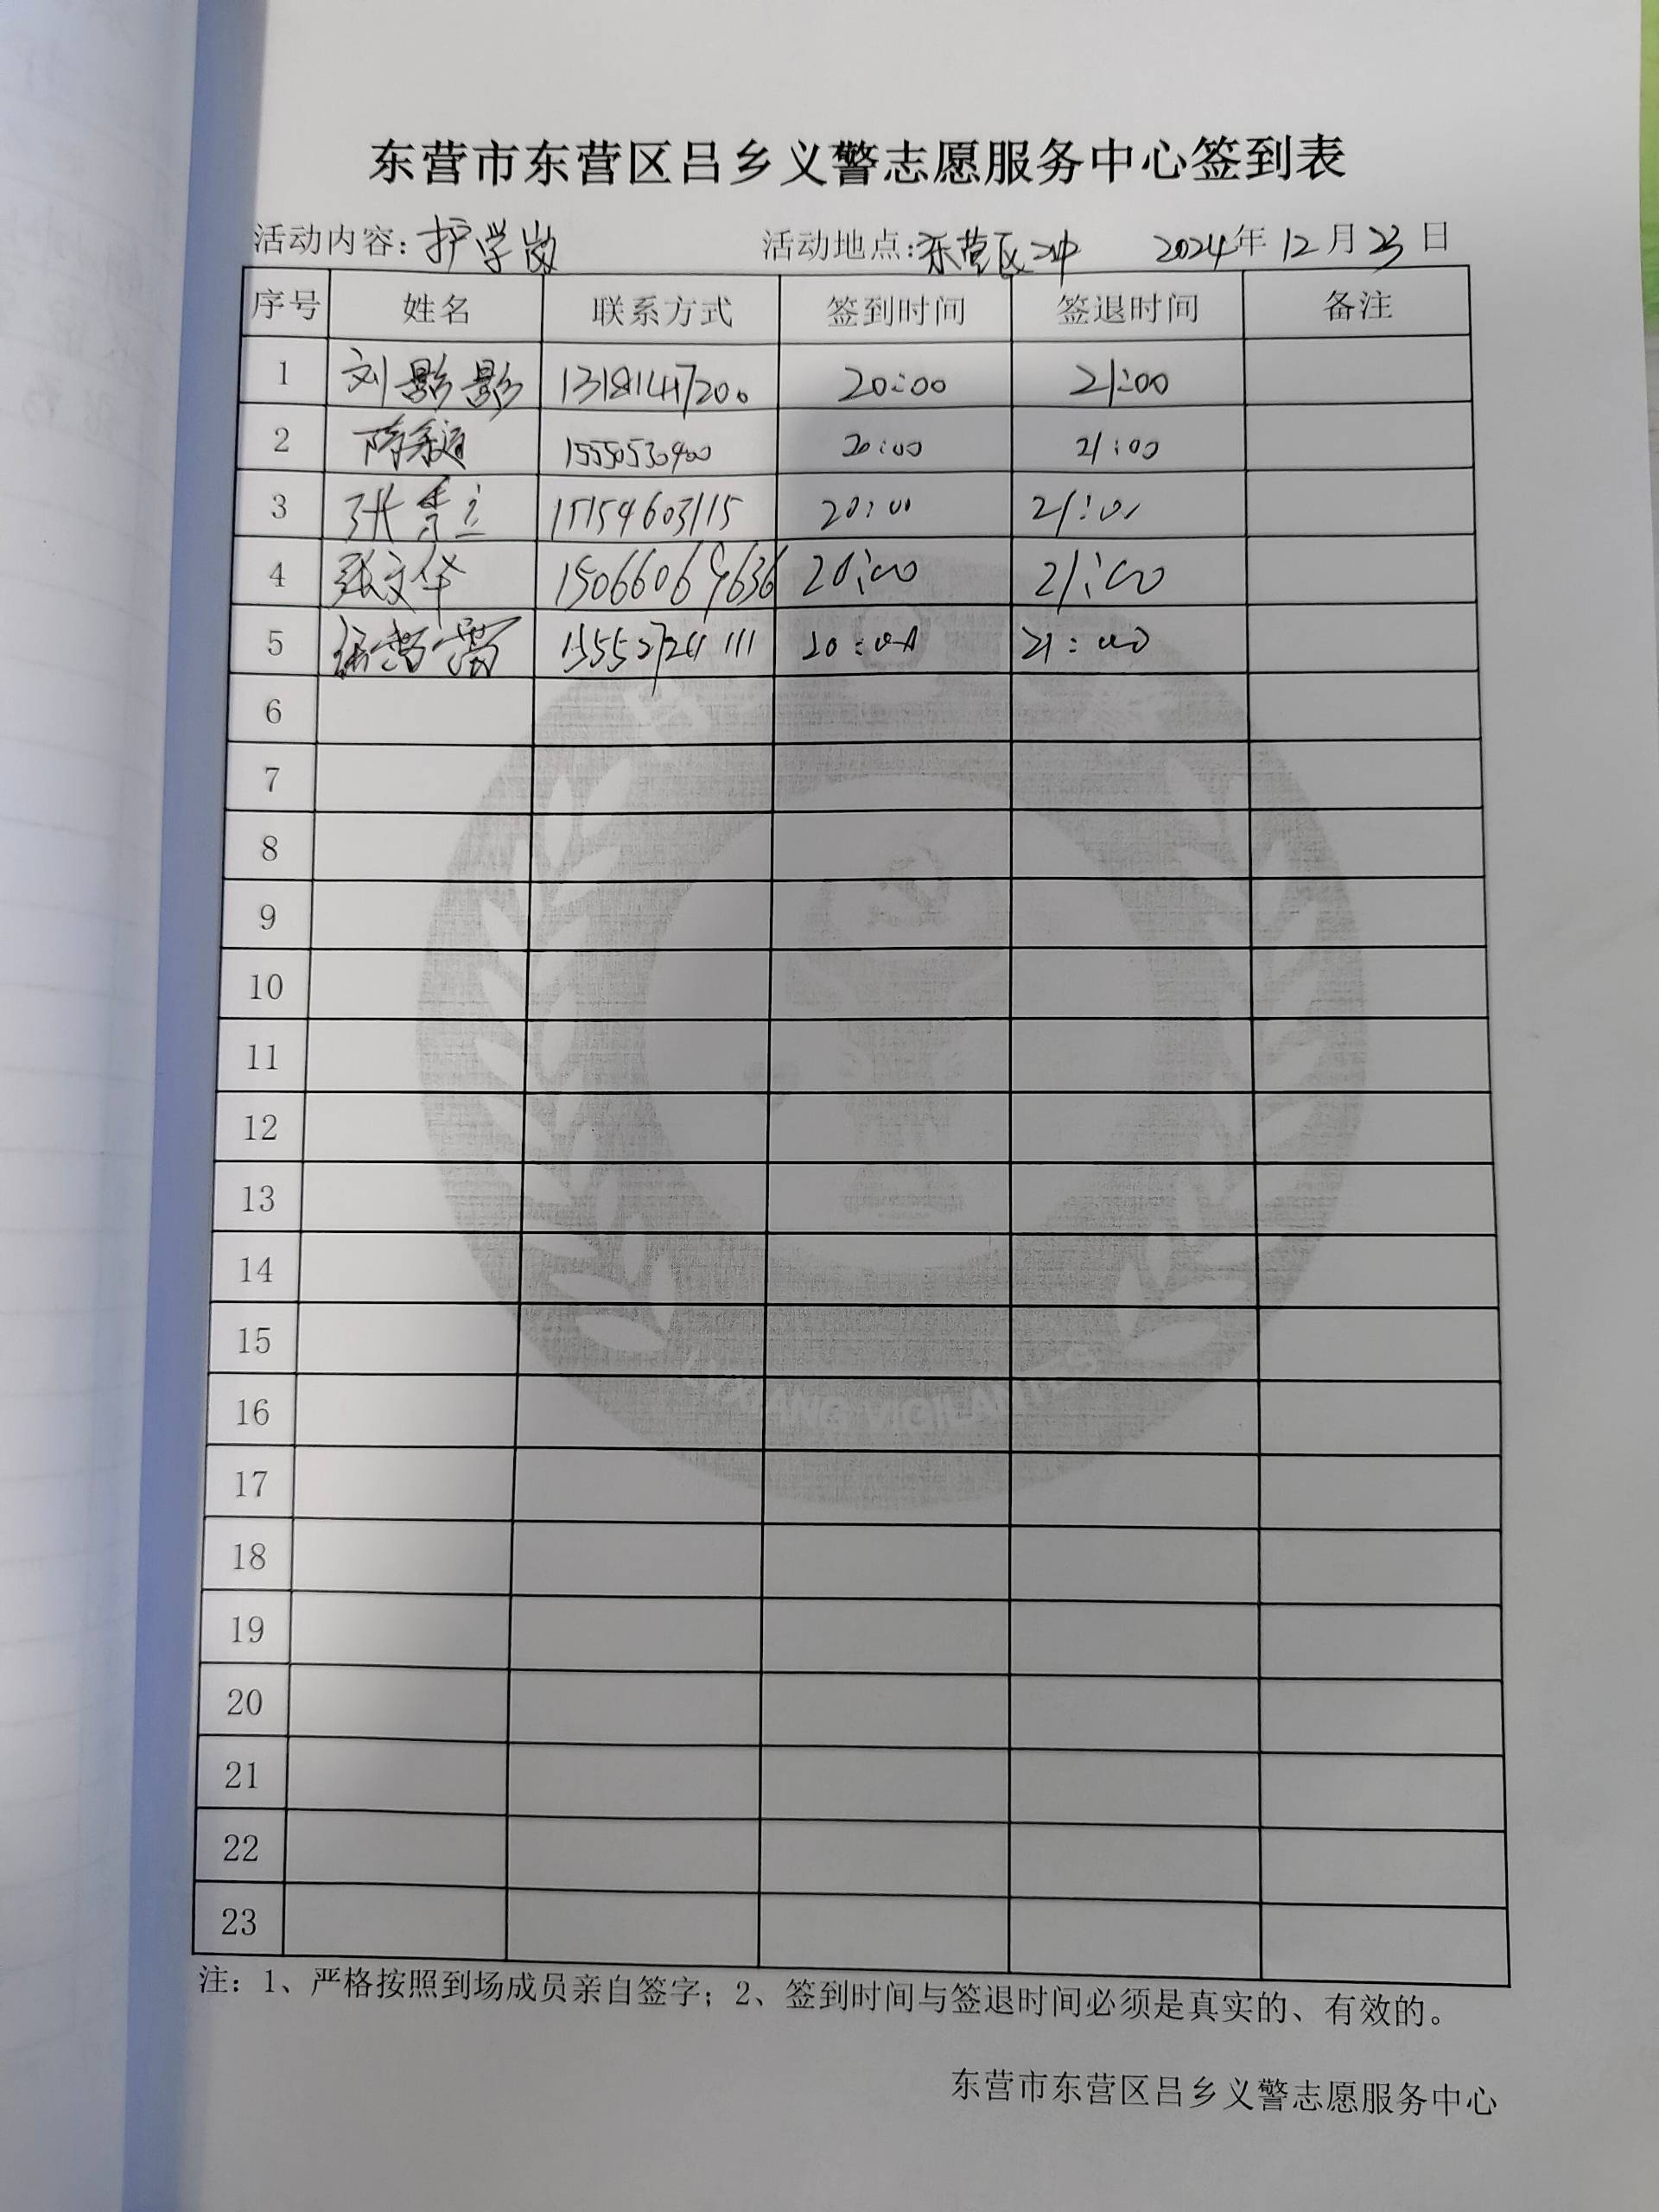 东营市东营区吕乡义警志愿服务中心签到表
活动内容: 护学岗 活动地点: 东营区二中 2024年12月23日
序号 姓名 联系方式 签到时间 签退时间 备注
1 刘影影 13181447200 20:00 21:00
2 15550530900 20:00 21:00
3 张秀立 15154603115 20:00 21:00
4 张文华 15066069636 20:00 21:00
5 20:00 21:00
6
7
8
9
10
11
12
13
14
15
16
17
18
19
20
21
22
23
注: 1、严格按照到场成员亲自签字; 2、签到时间与签退时间必须是真实的、有效的。
东营市东营区吕乡义警志愿服务中心